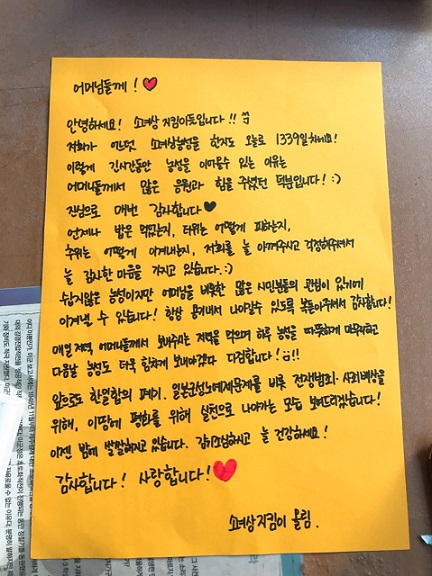 어머님들께! ♥
안녕하세요! 소녀상 지킴이들입니다!!
저희가 어느덧 소녀상농성을 한지도 오늘로 1339일차네요!
이렇게 긴시간동안 농성을 이어올수 있는 이유는
어머님들께서 많은 응원과 힘을 주셨던 덕분입니다! :)
진심으로 매번 감사합니다 ♥
언제나 밥은 먹었는지, 더위는 어떻게 피하는지,
추위는 어떻게 이겨내는지, 저희를 늘 아껴주시고 걱정해주셔서
늘 감사한 마음을 가지고 있습니다. :)
쉽지않은 농성이지만 어머님을 비롯한 많은 시민분들의 관심이 있기에
이겨낼 수 있습니다! 항상 용기내서 나아갈수 있도록 북돋아주셔서 감사합니다!
매일 저녁 어머님들께서 보내주시는 저녁을 먹으며 하루 농성을 따뜻하게 마무리하고
다음날 농성도 더욱 힘차게 보내야겠다 다짐합니다! !!
앞으로도 한일합의 폐기, 일본군성노예제문제를 비롯 전쟁범죄 사죄배상을
위해, 이땅에 평화를 위해 실천으로 나아가는 모습 보여드리겠습니다!
이젠 밤에 쌀쌀하지고 있습니다. 감기조심하시고 늘 건강하세요!
감사합니다! 사랑합니다! ♥
소녀상지킴이 올림.